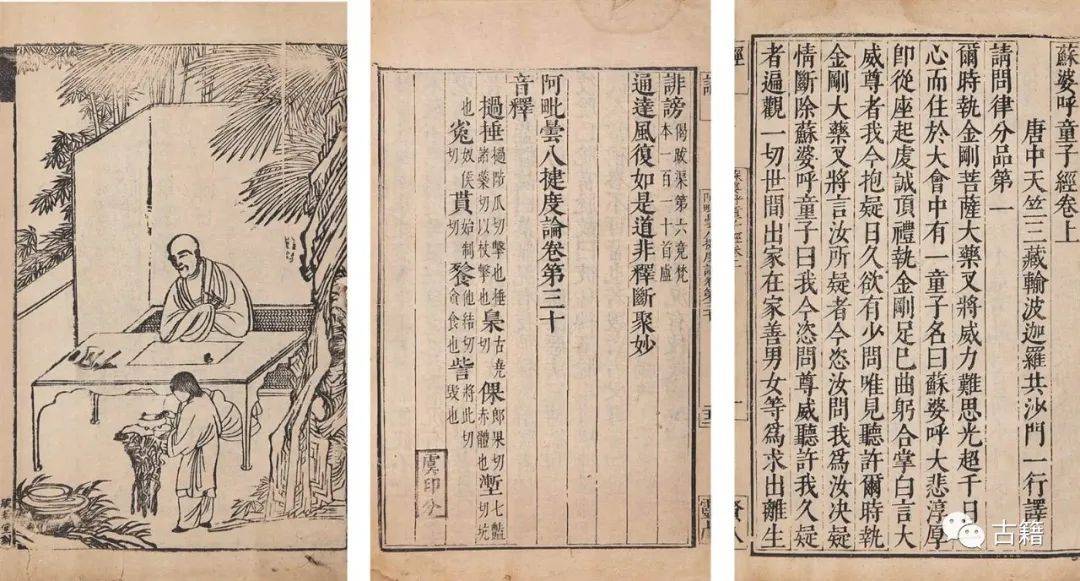 蘇婆呼童子經卷上
唐中天竺三藏輸波迦羅共沙門一行譯
請問律分品第一
爾時執金剛菩薩大藥叉將威力難思光超千日
心而住於大會中有一童子名曰蘇婆呼大悲淳厚
卽從座起虔誠頂禮執金剛足已曲躬合掌白言大
威尊者我今抱疑日久欲有少問唯見聽許爾時執
金剛大藥叉將言汝所疑者今恣汝問我爲汝決疑
情斷除蘇婆呼童子曰我今恣問尊威聽許我久疑
者遍觀一切世間出家在家善男女等爲求出離生
誹謗 偈跋渠第六竟梵本一百一十首盧
通達風復如是道非釋斷聚妙
阿毗曇八揵度論卷第三十
音釋
撾捶 撾防爪切擊也捶諸藥切以杖擊也 梟 古堯切 倮 郎果切赤體也 塹 七豔切坑
也 㝹 奴侯切 貰 始制切 飻 他結切貪食也 訾 將此切毀也
虞印分
古籍